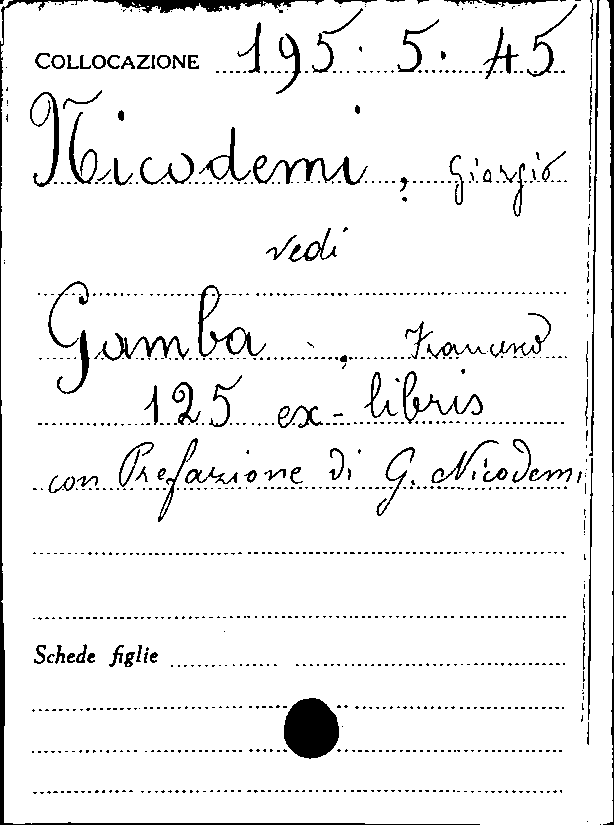 COLLOCAZIONE 195. 5. 45
Nicodemi, Giorgio
vedi
Gamba, Francesco
125 ex-libris
con Prefazione di G. Nicodemi
Schede figlie